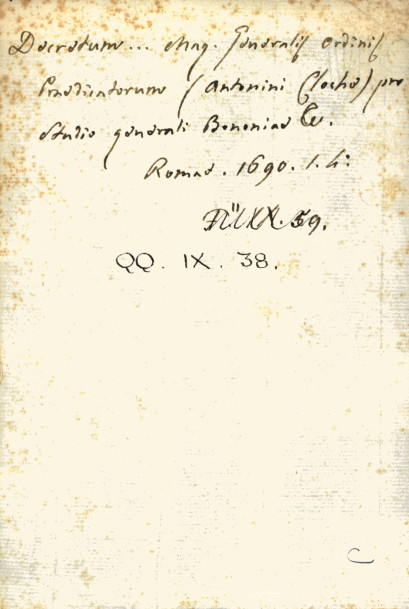 Decretum... Mag. Generalis Ordinis
Prædicatorum (Antonini Cloche) pro
studio generali Bononiae &c.
Romae. 1690. f. 4:
59.
QQ. IX. 38.